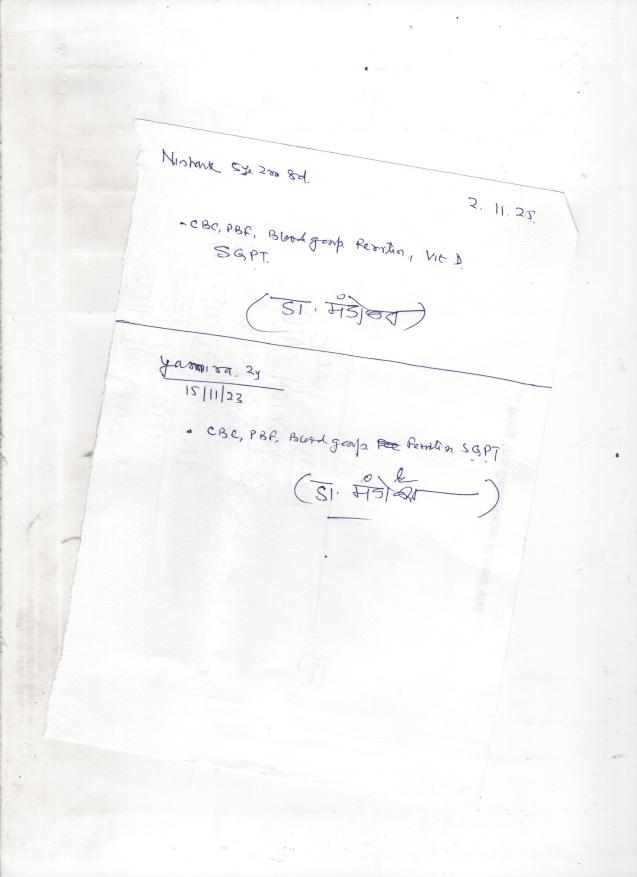 Nishank 5y 2m 8d.
2. 11. 25.
- CBC, PBF, Blood group Ferritin, Vit D
SGPT.
(डा. मंगेश)
2y
15/11/23
• CBC, PBF, Blood group Ferritin SGPT
(डा. मंगेश)